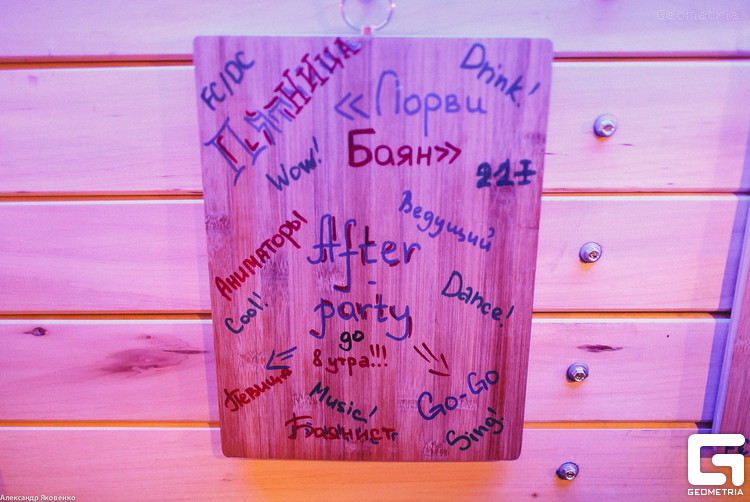 Geometria
FC/DC
Пятница
Drink!
«Порви
Баян»
Wow!
221
Ведущий
Аниматоры
After
-
party
Cool!
Dance!
до
8 утра!!!
Певица
Music!
Go-Go
Баянист
Sing!
Александр Яковенко
GEOMETRIA